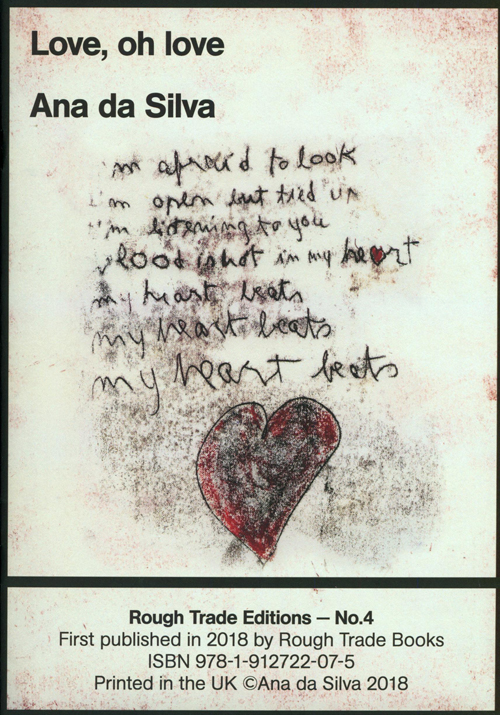 Love, oh love
Ana da Silva
'm afraid to look
'm open but tied up
'm listening to you
blood is hot in my heart
my heart beats
my heart beats
my heart beats
Rough Trade Editions – No.4
First published in 2018 by Rough Trade Books
ISBN 978-1-912722-07-5
Printed in the UK ©Ana da Silva 2018